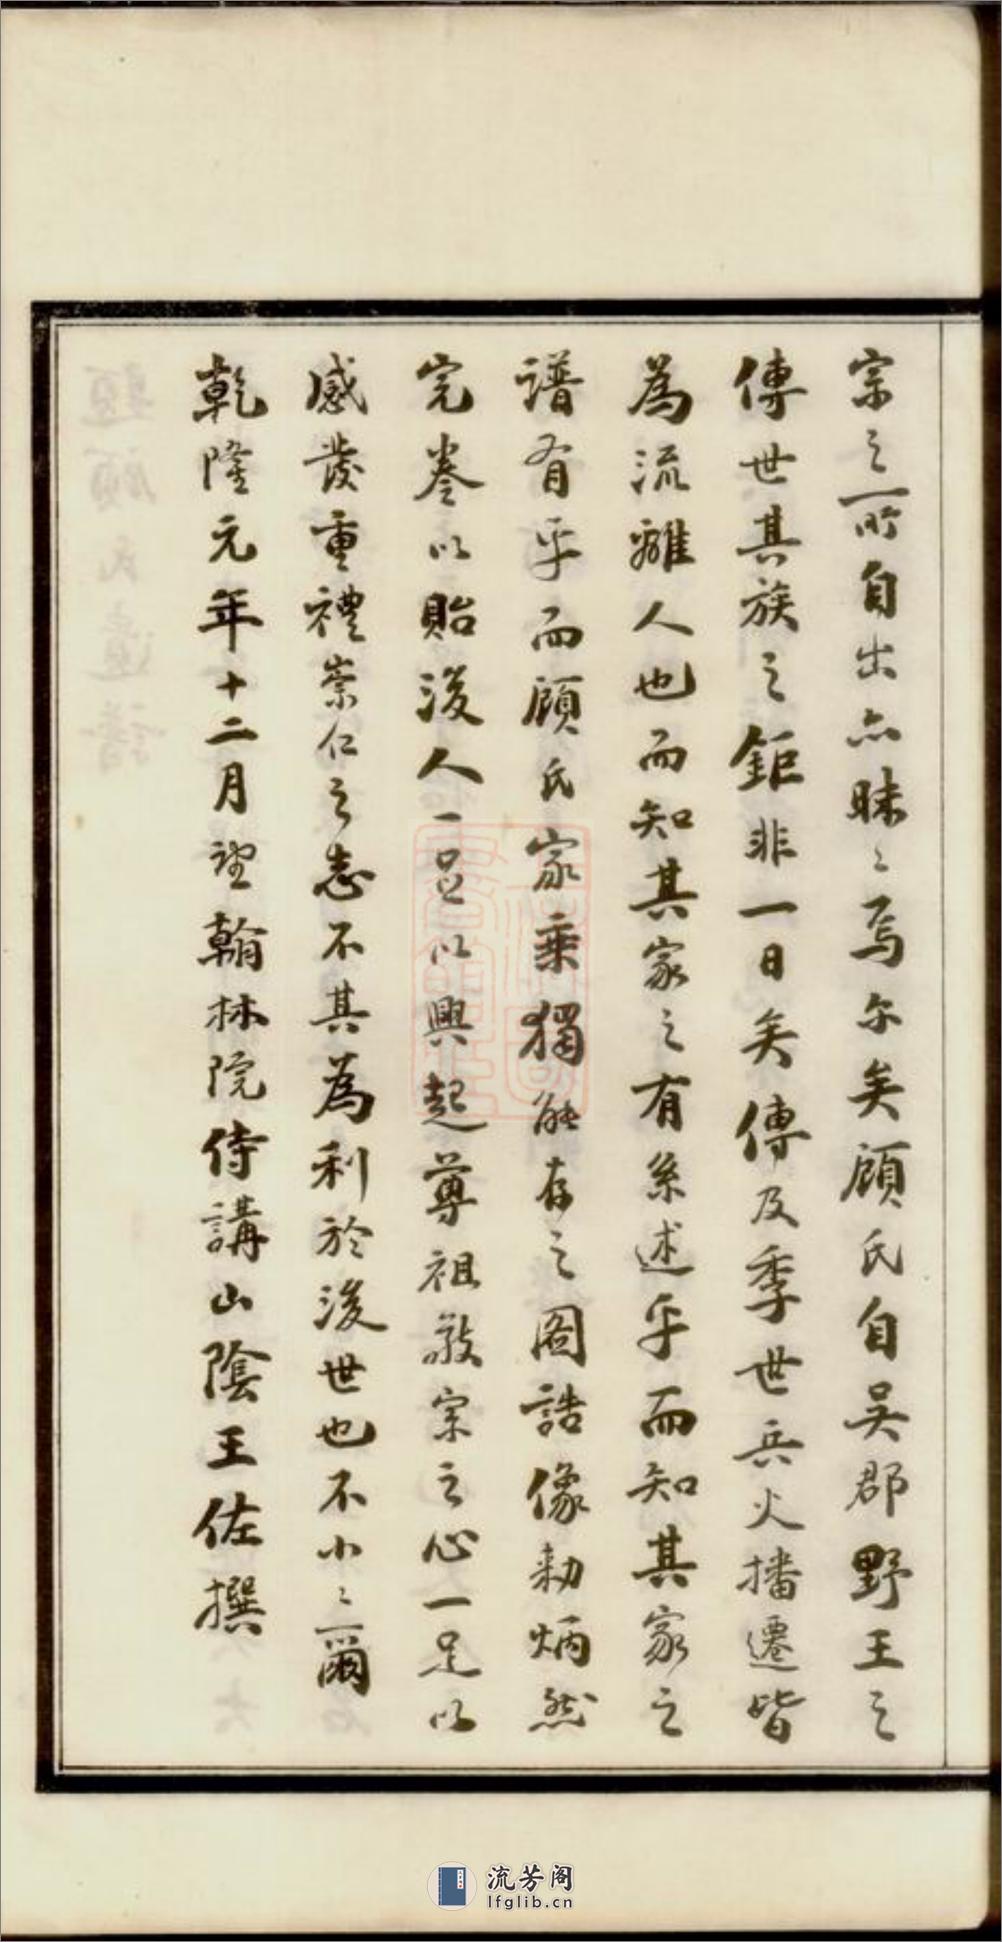 宗之所自出亦昧〻焉尔矣顧氏自吳郡野王之
傳世其族之鉅非一日矣傳及季世兵火播遷皆
為流離人也而知其家之有系述乎而知其家之
譜有乎而顧氏家乘獨能存之圖誥像勅炳然
完卷以貽後人一足以興起尊祖敬宗之心一足以
感發重禮崇仁之志不其為利於後世也不小〻爾
乾隆元年十二月望翰林院侍講山陰王佐撰
流芳阁
lfglib.cn